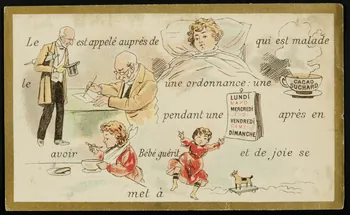 Le est appelé auprès de qui est malade
le une ordonnance: une
CACAO
SUCHARD
LUNDI
MARDI
MERCREDI
JEUDI
VENDREDI
SAMEDI
DIMANCHE
pendant une après en
avoir Bébé guérit et de joie se
met à